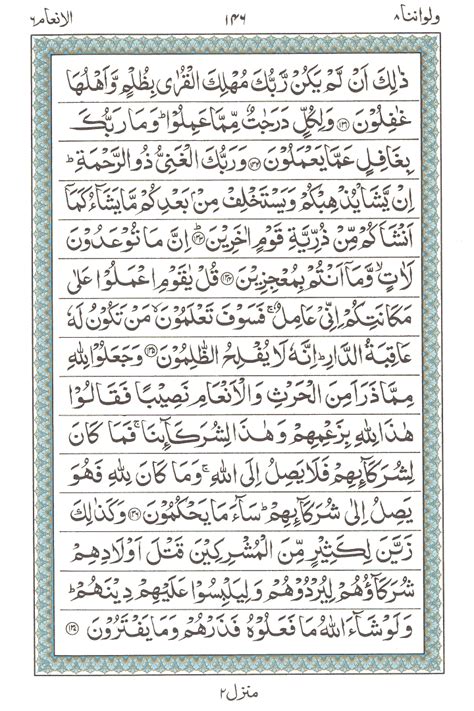 ولواننا ٨ ١٤٦ الانعام ٦
ذٰلِكَ اَنْ لَّمْ يَكُنْ رَّبُّكَ مُهْلِكَ الْقُرٰى بِظُلْمٍ وَّاَهْلُهَا
غٰفِلُوْنَ ﴿١٣١﴾ وَلِكُلٍّ دَرَجٰتٌ مِّمَّا عَمِلُوْا ؕ وَمَا رَبُّكَ
بِغَافِلٍ عَمَّا يَعْمَلُوْنَ ﴿١٣٢﴾ وَرَبُّكَ الْغَنِىُّ ذُو الرَّحْمَةِ ؕ
اِنْ يَّشَاْ يُذْهِبْكُمْ وَيَسْتَخْلِفْ مِنْۢ بَعْدِكُمْ مَّا يَشَآءُ كَمَاۤ
اَنْشَاَكُمْ مِّنْ ذُرِّيَّةِ قَوْمٍ اٰخَرِيْنَ ﴿١٣٣﴾ اِنَّ مَا تُوْعَدُوْنَ
لَاٰتٍ ۙ وَّمَاۤ اَنْتُمْ بِمُعْجِزِيْنَ ﴿١٣٤﴾ قُلْ يٰقَوْمِ اعْمَلُوْا عَلٰى
مَكَانَتِكُمْ اِنِّىْ عَامِلٌ ۚ فَسَوْفَ تَعْلَمُوْنَ ۙ مَنْ تَكُوْنُ لَهٗ
عَاقِبَةُ الدَّارِ ؕ اِنَّهٗ لَا يُفْلِحُ الظّٰلِمُوْنَ ﴿١٣٥﴾ وَجَعَلُوْا لِلّٰهِ
مِمَّا ذَرَاَ مِنَ الْحَرْثِ وَالْاَنْعَامِ نَصِيْبًا فَقَالُوْا
هٰذَا لِلّٰهِ بِزَعْمِهِمْ وَهٰذَا لِشُرَكَآئِنَا ۚ فَمَا كَانَ
لِشُرَكَآئِهِمْ فَلَا يَصِلُ اِلَى اللّٰهِ ۚ وَمَا كَانَ لِلّٰهِ فَهُوَ
يَصِلُ اِلٰى شُرَكَآئِهِمْ ؕ سَآءَ مَا يَحْكُمُوْنَ ﴿١٣٦﴾ وَكَذٰلِكَ
زَيَّنَ لِكَثِيْرٍ مِّنَ الْمُشْرِكِيْنَ قَتْلَ اَوْلَادِهِمْ
شُرَكَآؤُهُمْ لِيُرْدُوْهُمْ وَلِيَلْبِسُوْا عَلَيْهِمْ دِيْنَهُمْ ؕ
وَلَوْ شَآءَ اللّٰهُ مَا فَعَلُوْهُ فَذَرْهُمْ وَمَا يَفْتَرُوْنَ ﴿١٣٧﴾
منزل ٢